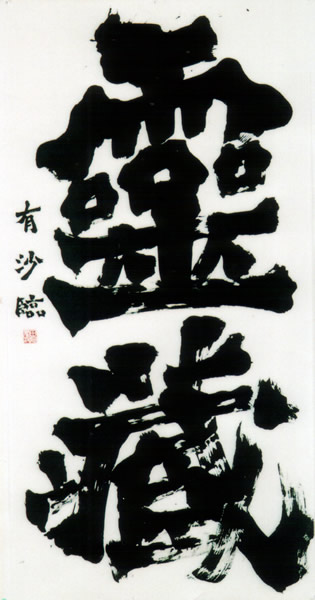 靈藏
有沙臨